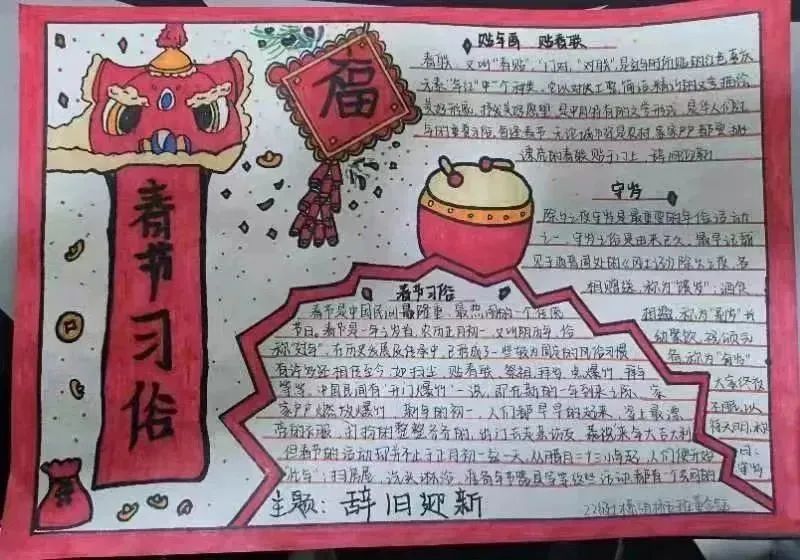 春节习俗
福
贴年画 贴春联
春联，又叫"春贴"、"门对"、"对联"，是过年时所贴的红色喜庆
元素"年红"中一个种类。它以对仗工整、简洁精巧的文字描绘
美好形象，抒发美好愿望，是中国特有的文学形式，是华人们过
年的重要习俗。每逢春节，无论城市还是农村，家家户户都要挑
漂亮的春联贴于门上，辞旧迎新
守岁
除夕之夜守岁是最重要的年俗活动
之一，守岁之俗由来已久。最早记载
见于西晋周处的《风土志》：除夕之夜，各
相赠送，称为"馈岁"；酒食
相邀，称为"别岁"；长
幼聚饮，祝颂完
备，称为"分岁"
大家终夜
不眠，以
待天明，称
曰：守岁
春节习俗
春节是中国民间最隆重、最热闹的一个传统
节日。春节是一年之岁首，农历正月初一，又叫阴历年，俗
称"过年"。在历史发展及传承中，已形成了一些较为固定的风俗习惯
有许多还相传至今，如扫尘、贴春联、祭祖、拜年、点爆竹、拜年
等等，中国民间有"开门爆竹"一说，即在新的一年到来之际，家
家户户燃放爆竹，新年的初一，人们都早早的起来，穿上最漂
亮的衣服，打扮的整整齐齐的，出门去走亲访友，恭祝来年大吉大利
但春节的活动却并不止于正月初一这一天，从腊月二十三小年起，人们便开始
"忙年"：扫房屋、洗头沐浴、准备年节器具等，所这些活动都有一个共同的
主题：辞旧迎新